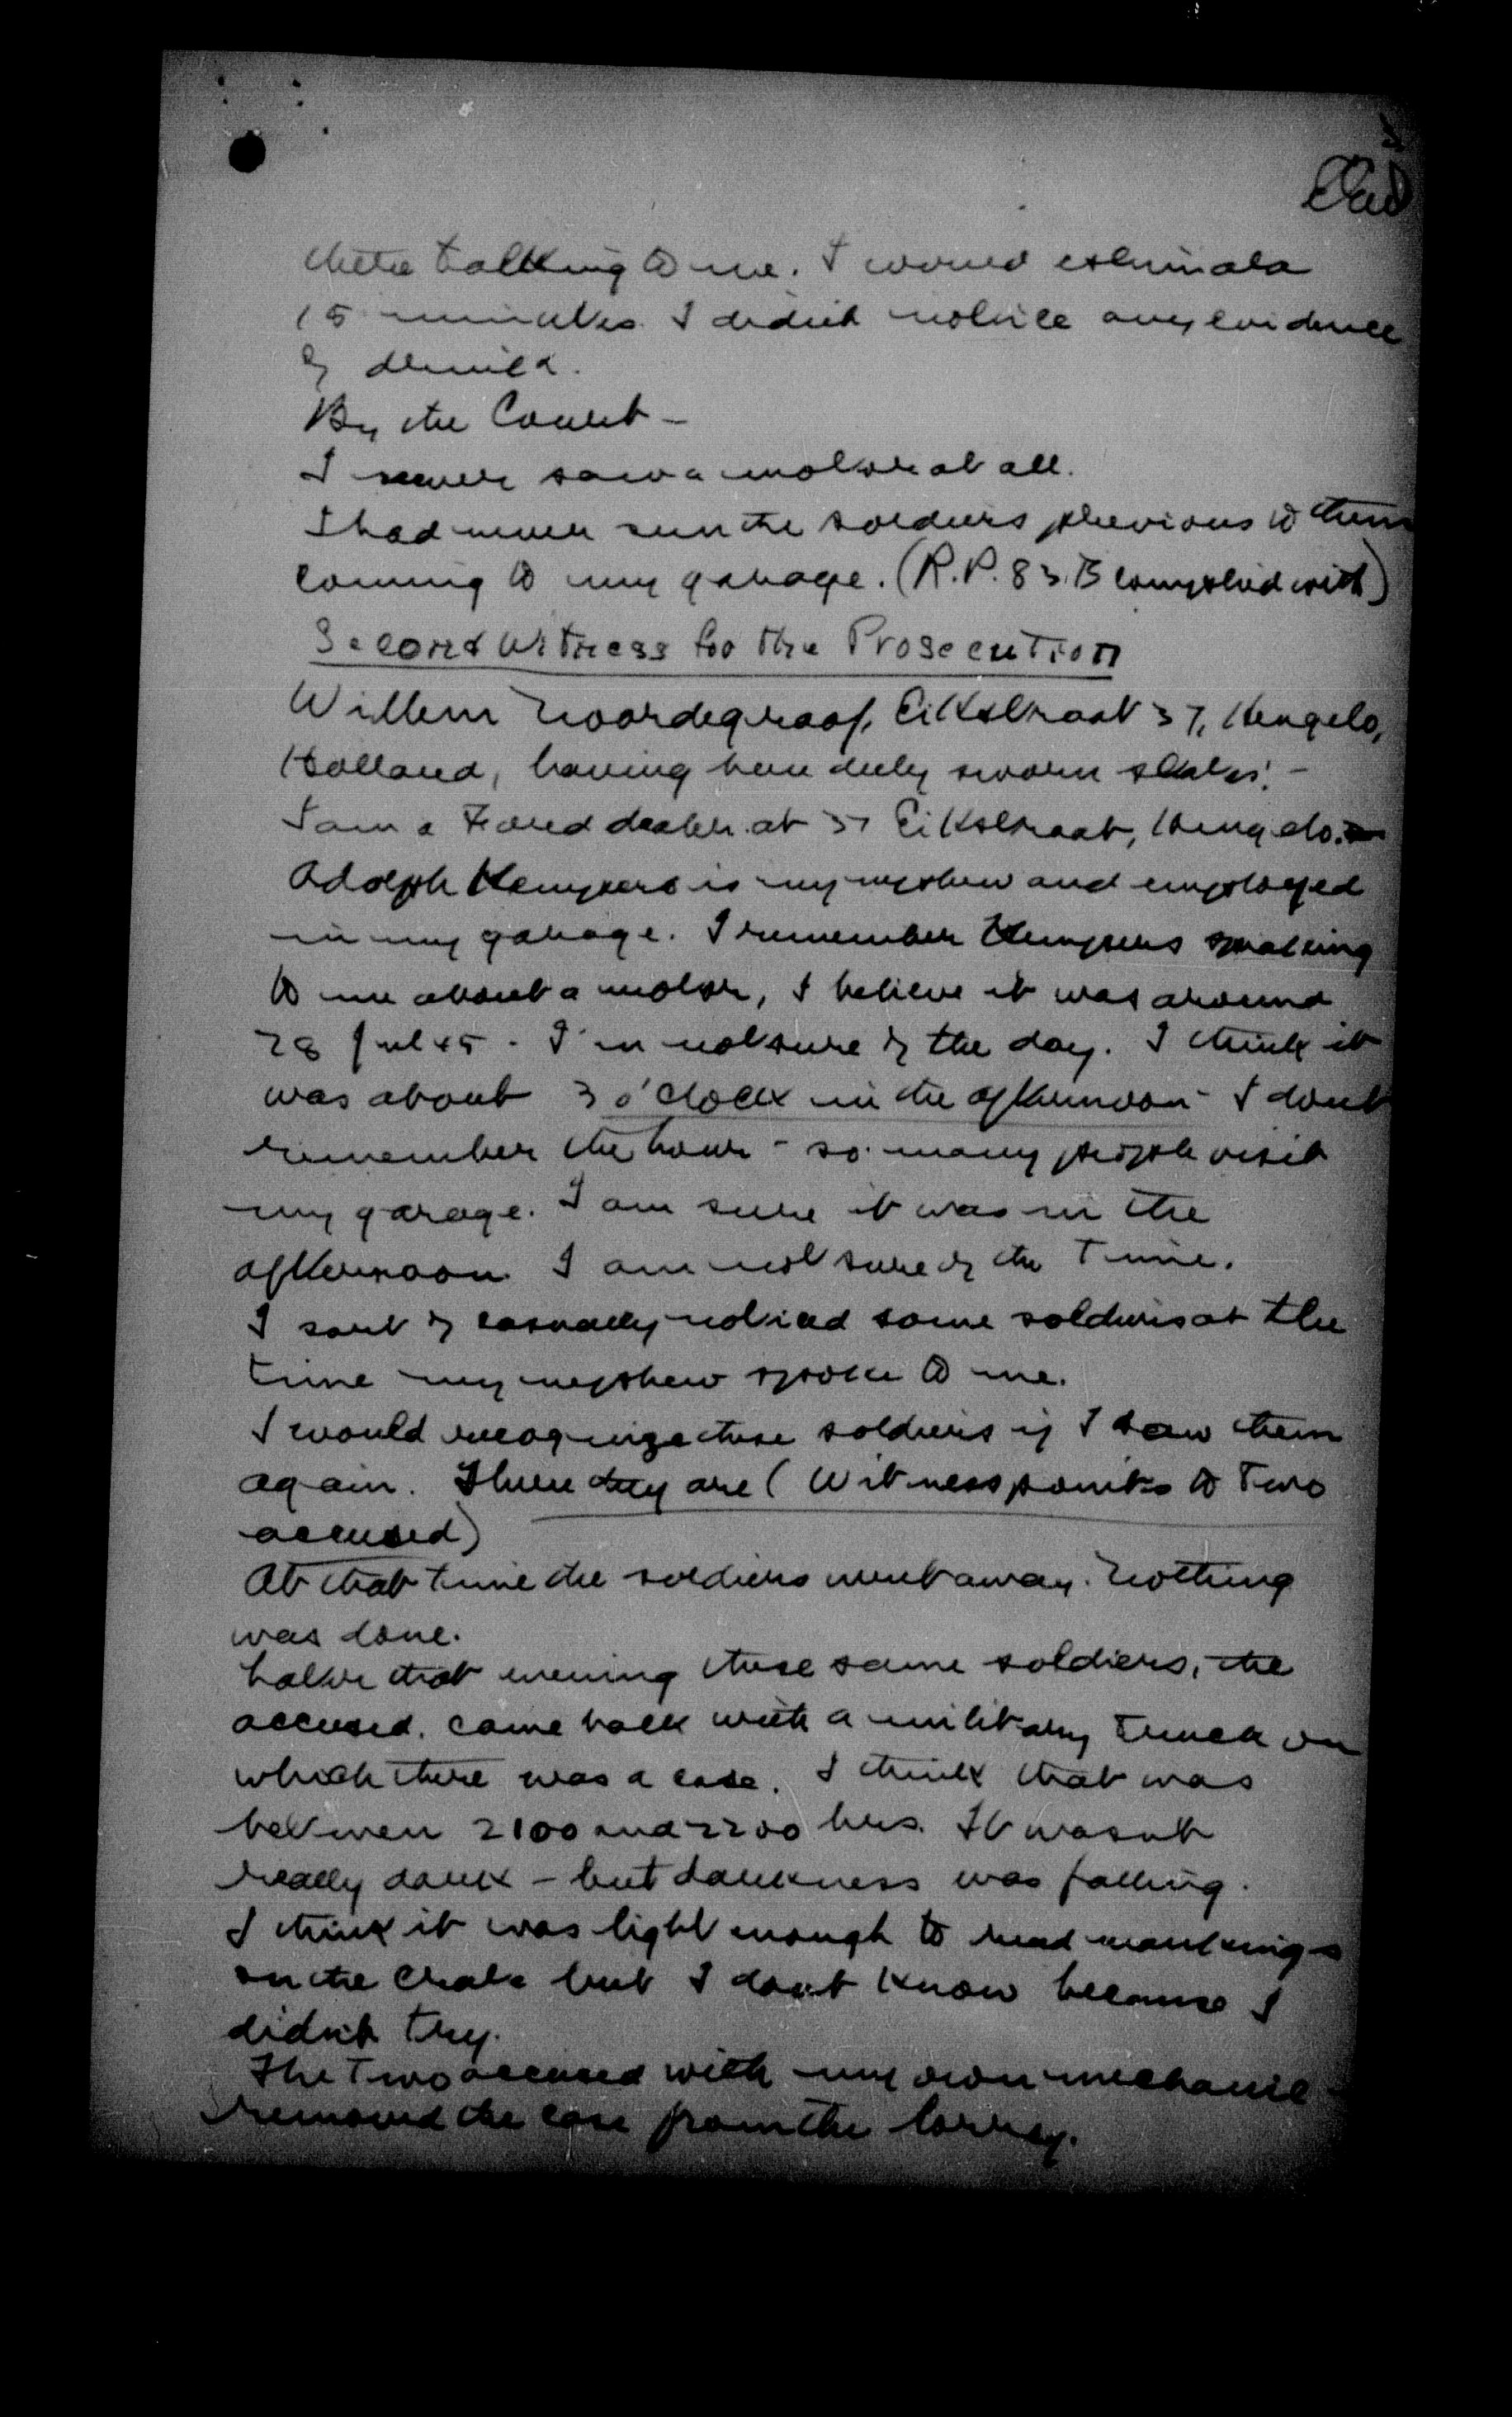 there talking to me. I would estimate
15 minutes. I didn't notice any evidence
of drink.
By the Court -
I never saw a motor at all.
I had never seen the soldiers previous to them
coming to my garage. (R.P. 83.B complied with)
Second Witness for the Prosecution
Willem Noordegraaf, Eikstraat 37, Hengelo,
Holland, having been duly sworn states: -
I am a Ford dealer at 37 Eikstraat, Hengelo.
Adolph Kempers is my nephew and employed
in my garage. I remember Kempers speaking
to me about a motor, I believe it was around
28 Jul 45 - I'm not sure of the day. I think it
was about 3 o'clock in the afternoon - I don't
remember the hour - so many people visit
my garage. I am sure it was in the
afternoon I am not sure of the time.
I sort of casually noticed some soldiers at the
time my nephew spoke to me.
I would recognize these soldiers if I saw them
again. There they are (Witness points to two
accused)
At that time the soldiers went away. Nothing
was done.
Later that evening these same soldiers, the
accused, came back with a military truck on
which there was a case. I think that was
between 2100 and 2200 hrs. It wasn't
really dark - but darkness was falling.
I think it was light enough to read markings
on the crate but I don't know because I
didn't try.
The two accused with my own mechanic
removed the case from the lorry.